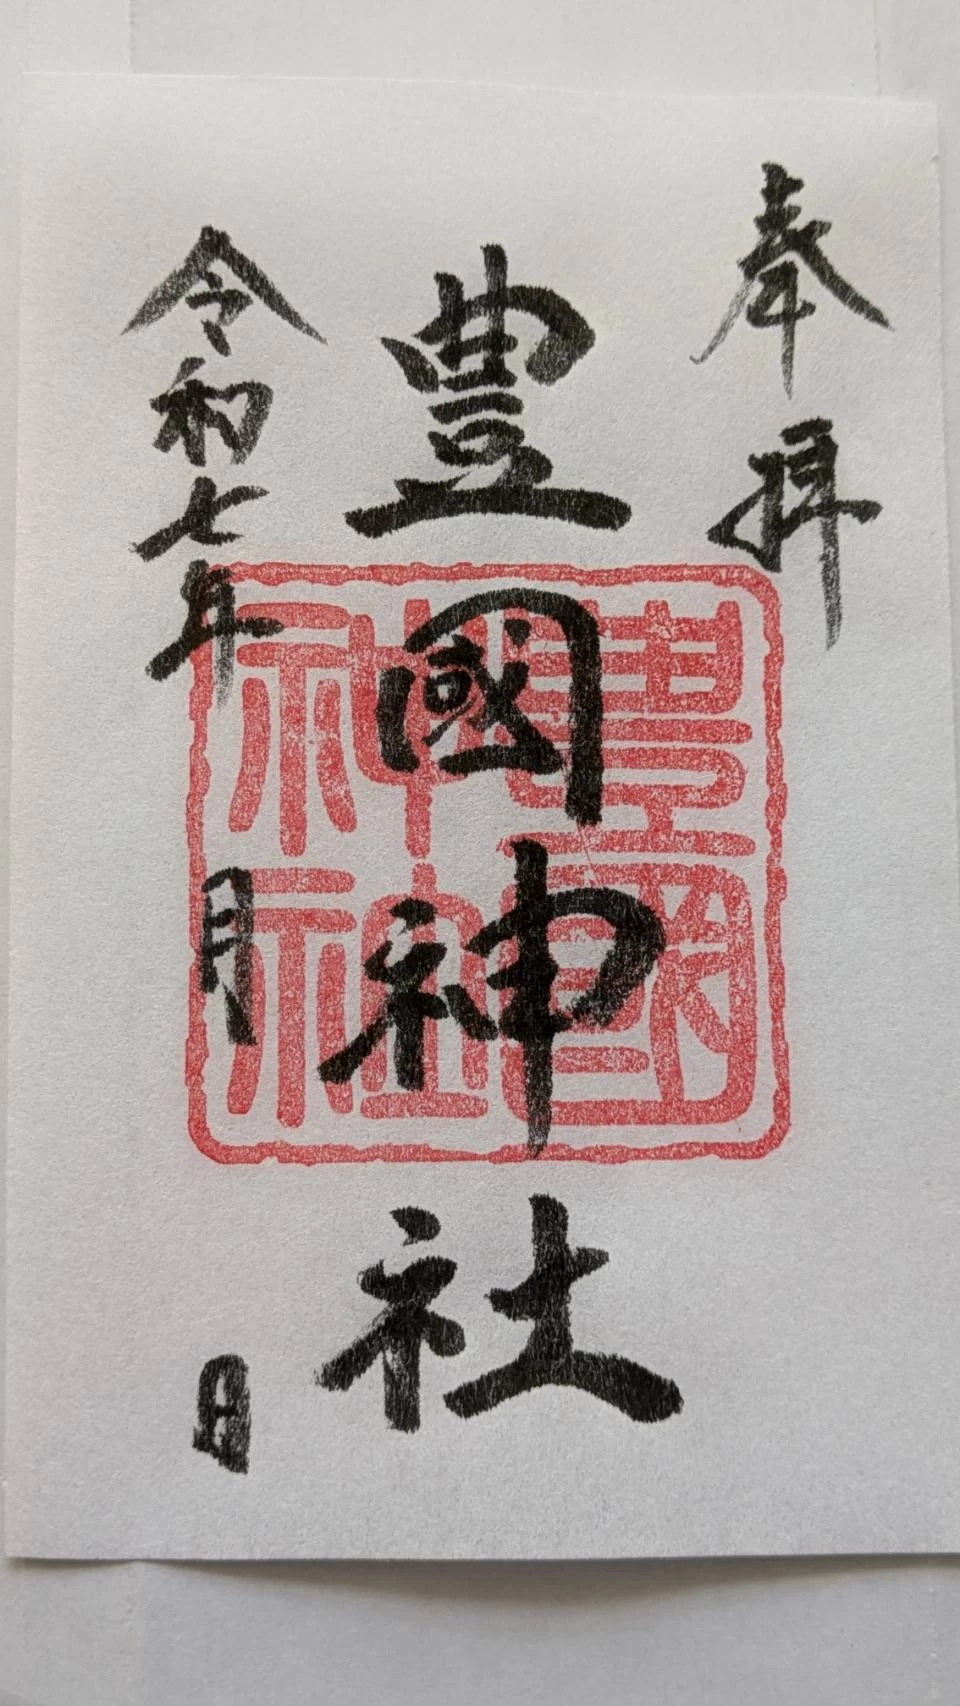 奉拝
豊國神社
豊國
神社
令和七年 月 日